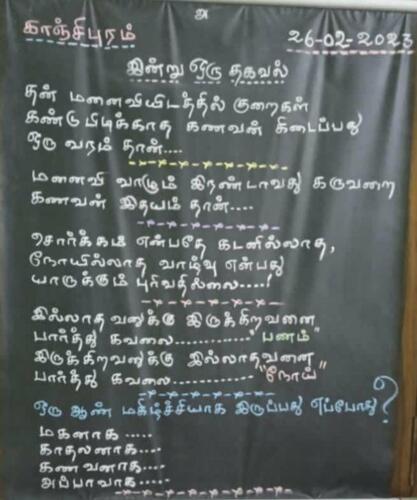 காஞ்சிபுரம்
26-02-2023
இன்று ஒரு தகவல்
தன் மனைவியிடத்தில் குறைகள்
கண்டுபிடிக்காத கணவன் கிடைப்பது
ஒரு வரம் தான்....
மனைவி வாழும் இரண்டாவது கருவறை
கணவன் இதயம் தான்....
சொர்க்கம் என்பதே கடனில்லாத,
நோயில்லாத வாழ்வு என்பது
யாருக்கும் புரிவதில்லை....!
இல்லாதவனுக்கு இருக்கிறவனை
பார்த்து கவலை............."பணம்"
இருக்கிறவனுக்கு இல்லாதவனை
பார்த்து கவலை............."நோய்"
ஒரு ஆண் மகிழ்ச்சியாக இருப்பது எப்போது?
மகனாக .....
காதலனாக....
கணவனாக....
அப்பாவாக....